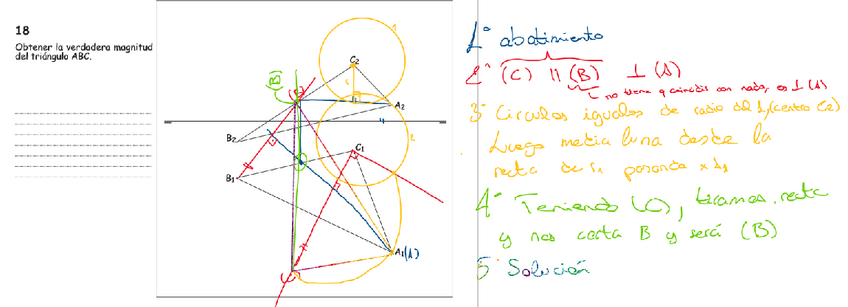 18
Obtener la verdadera magnitud
del triángulo ABC.
C₂
(B)
A₂
B₂
B₁
C₁
A₁(A)
(C)
1º abatimiento
2º (C) || (B) ⊥ (A)
no tiene q coincidir con nada, es ⊥ (A)
3º Circulos iguales de radio del 1, (centro C₂)
Luego media luna desde la
recta de
pasando x
4º Teniendo (C), tiramos recta
y nos corta B y será (B)
5º Solución